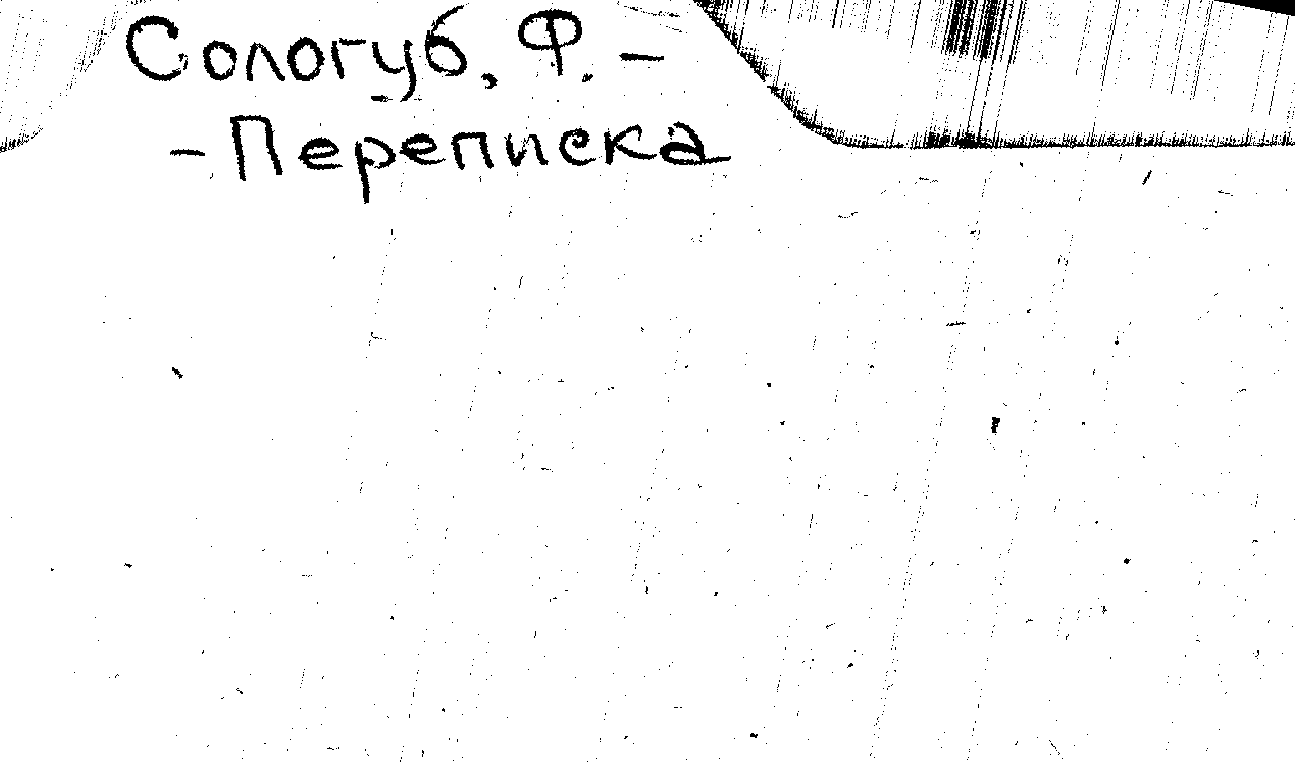 Сологуб, Ф. –
– Переписка